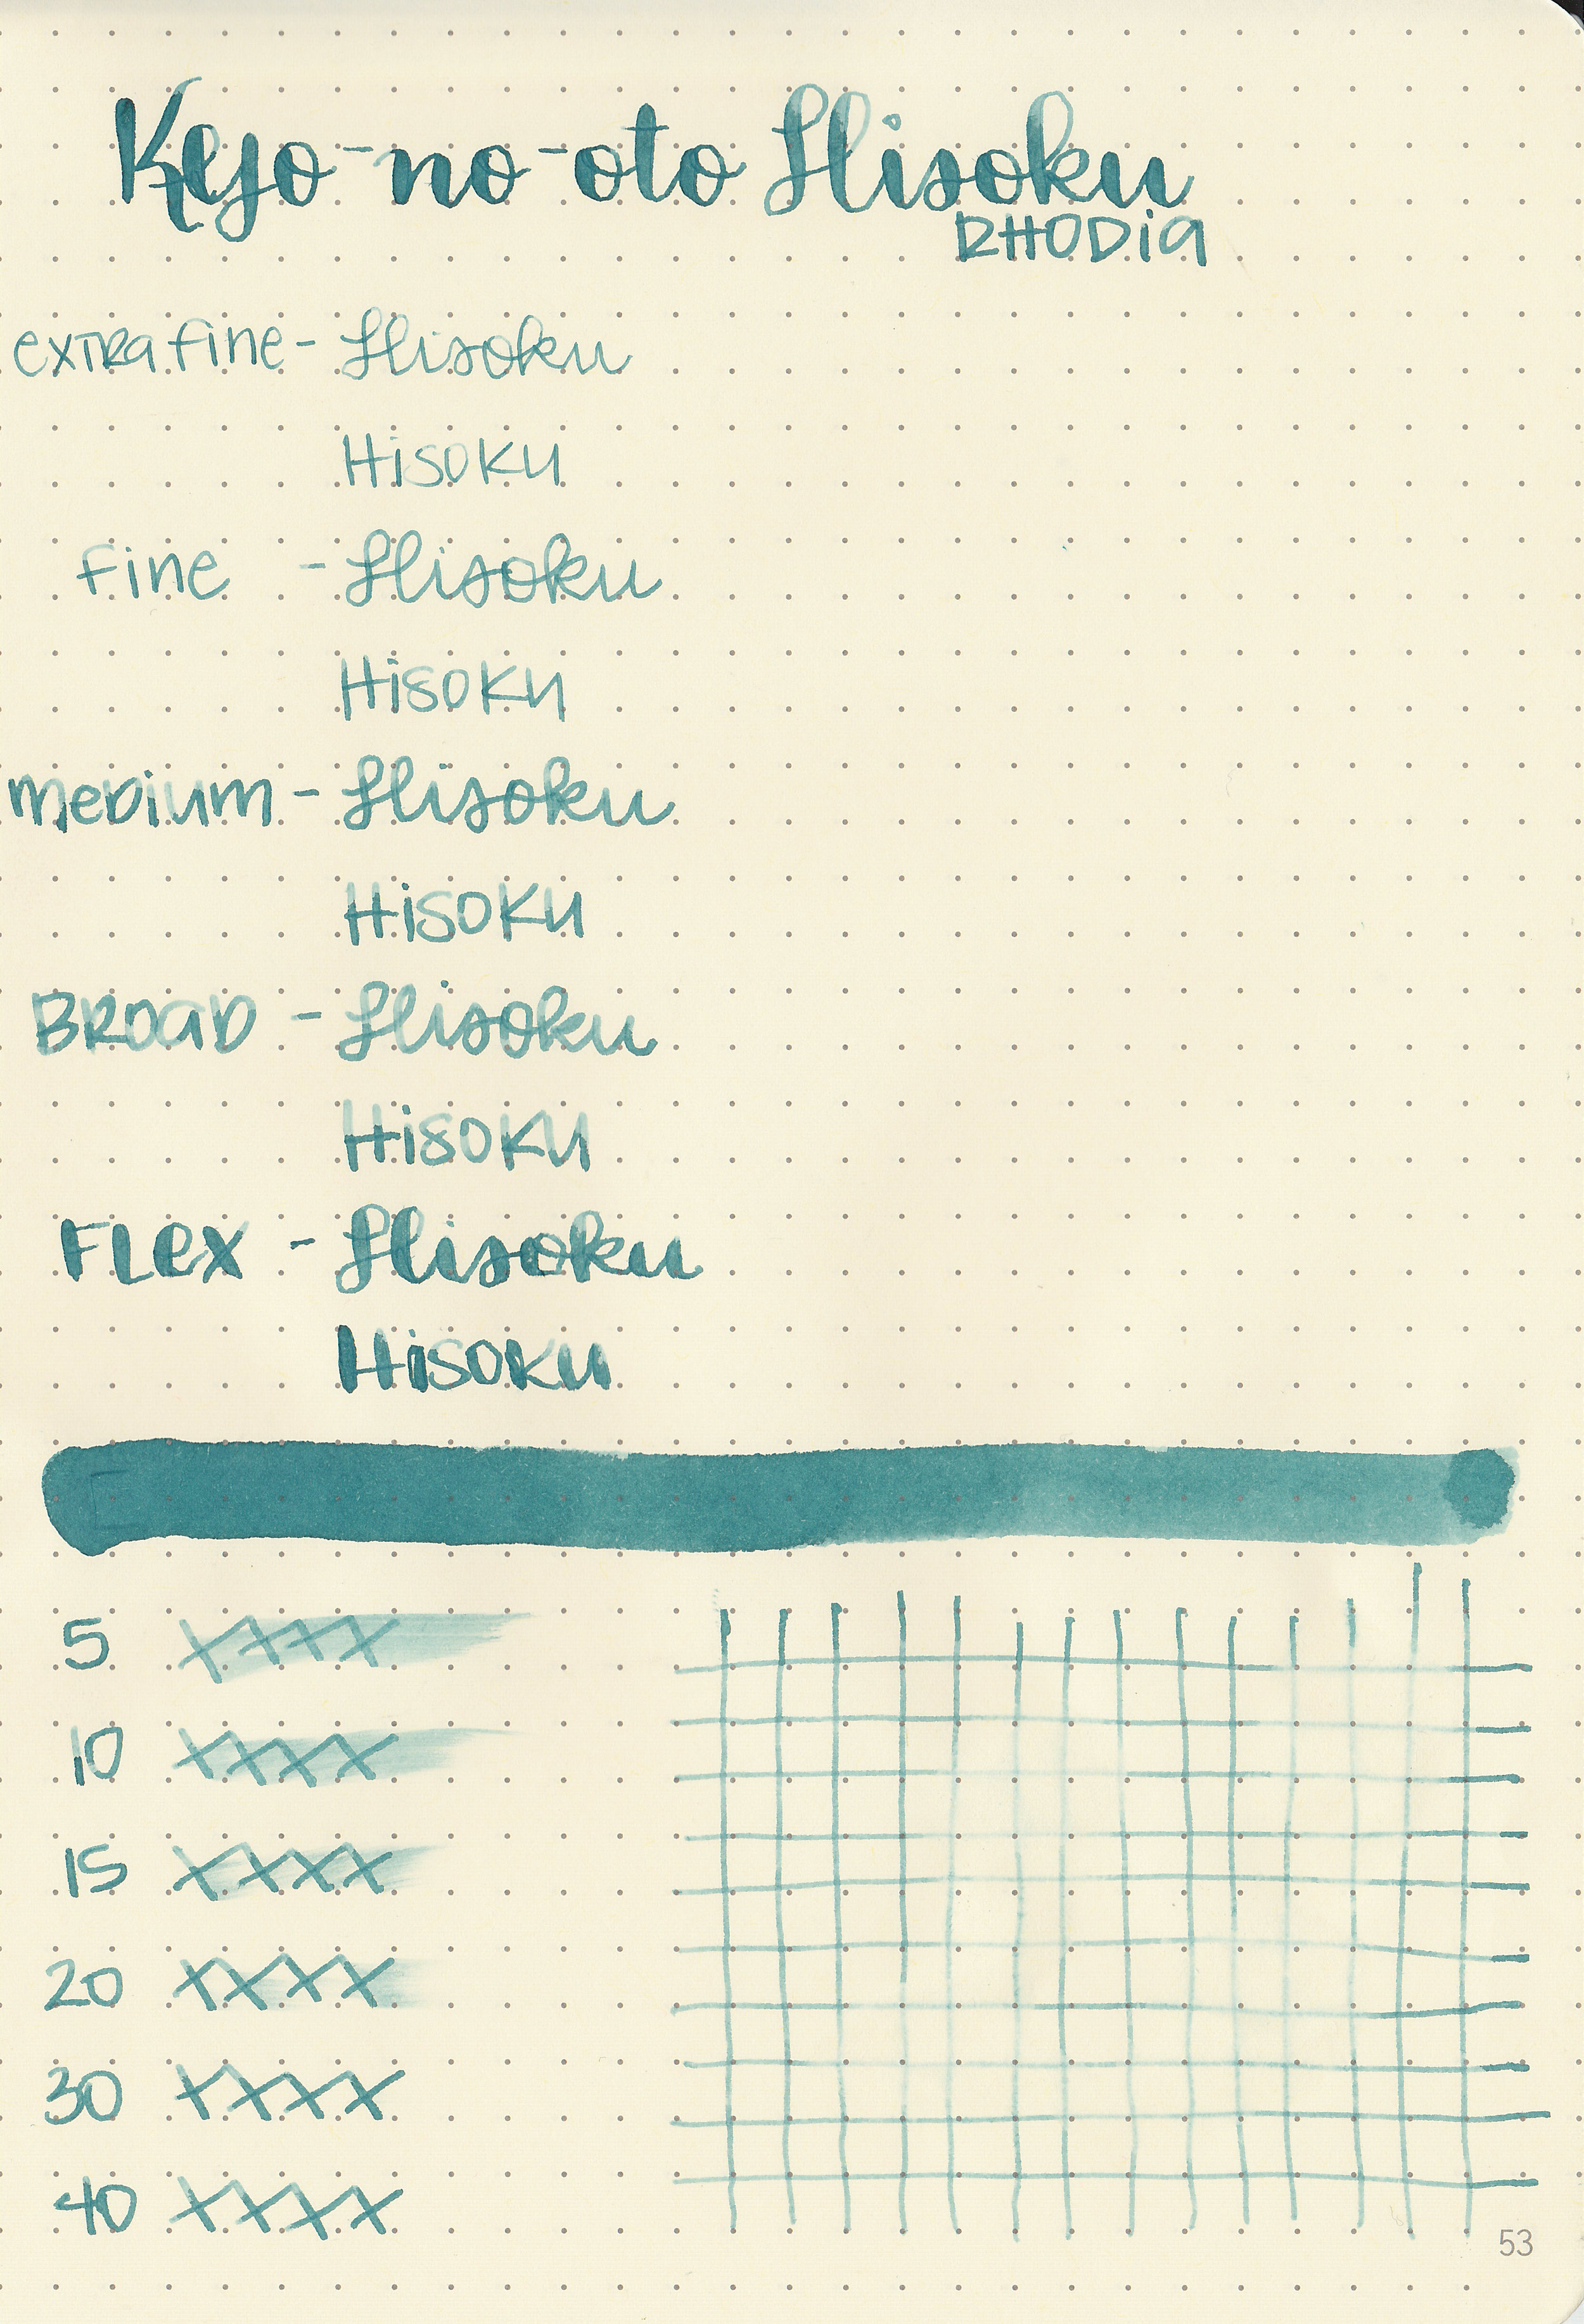 Kyo-no-oto Hisoku
RHODia
extra fine - Hisoku
Hisoku
Fine - Hisoku
Hisoku
meDium - Hisoku
Hisoku
BROaD - Hisoku
Hisoku
FLex - Hisoku
Hisoku
5 xxxx
10 xxxx
15 xxxx
20 xxxx
30 xxxx
40 xxxx
53